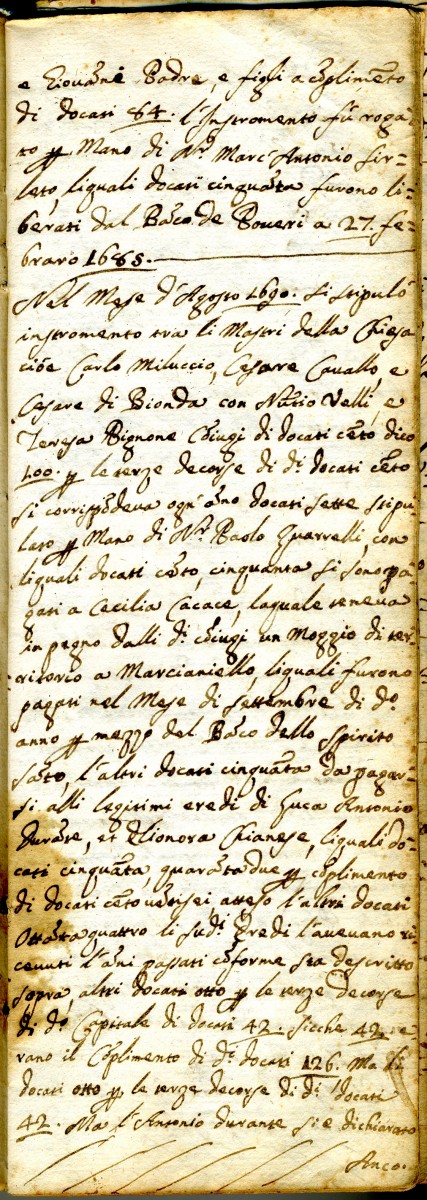 e Giovan̄e Padre, e figli a cōplimēto
di docati 84. l'Instromento fù roga-
to p Mano di Nr. Marc'Antonio Sir-
leto, liquali docati cinquāta furono li-
berati dal Bāco de Poveri a 27. fe-
braro 1685.
Nel Mese d'Agosto 1690. si stipulò
instromento tra li Mastri della Chiesa
cioè Carlo Miluccio, Cesare Cavallo, e
Cesare di Bionda con Velli, e
Teresa Pignone Cōiugi di docati cēto dico
100. p le terze decorse di di. docati cēto
si corrispōdeva ogn'āno docati sette stipu-
lato p Mano di Nr. Paolo Quarrelli, con
liquali docati cēto, cinquanta si sono pa-
gati a Cecilia Cacace, laquale teneva
in pegno dalli di. cōiugi un Moggio di ter-
ritorio a Marcianiello, liquali furono
pagati nel Mese di Settembre di do.
anno p mezzo del Bāco dello Spirito
sāto, l'altri docati cinquāta da pagar-
si alli legitimi eredi di Luca Antonio
Durāte, et Elionora Chianese, liquali do-
cati cinquāta, quarātadue p cōplimento
di docati cēto vētisei atteso l'altri docati
Ottātaquattro li sudi. Eredi l'avevano ri-
cevuti l'āni passati cōforme sta descritto
sopra, altri docati otto p le terze decorse
di do. Capitale di docati 42. sicche 42. e-
rano il Cōplimento di di. docati 126. Ma li
docati otto p le terze decorse di di. docati
42. Ma l'Antonio durante si è dichiarato
Anco.